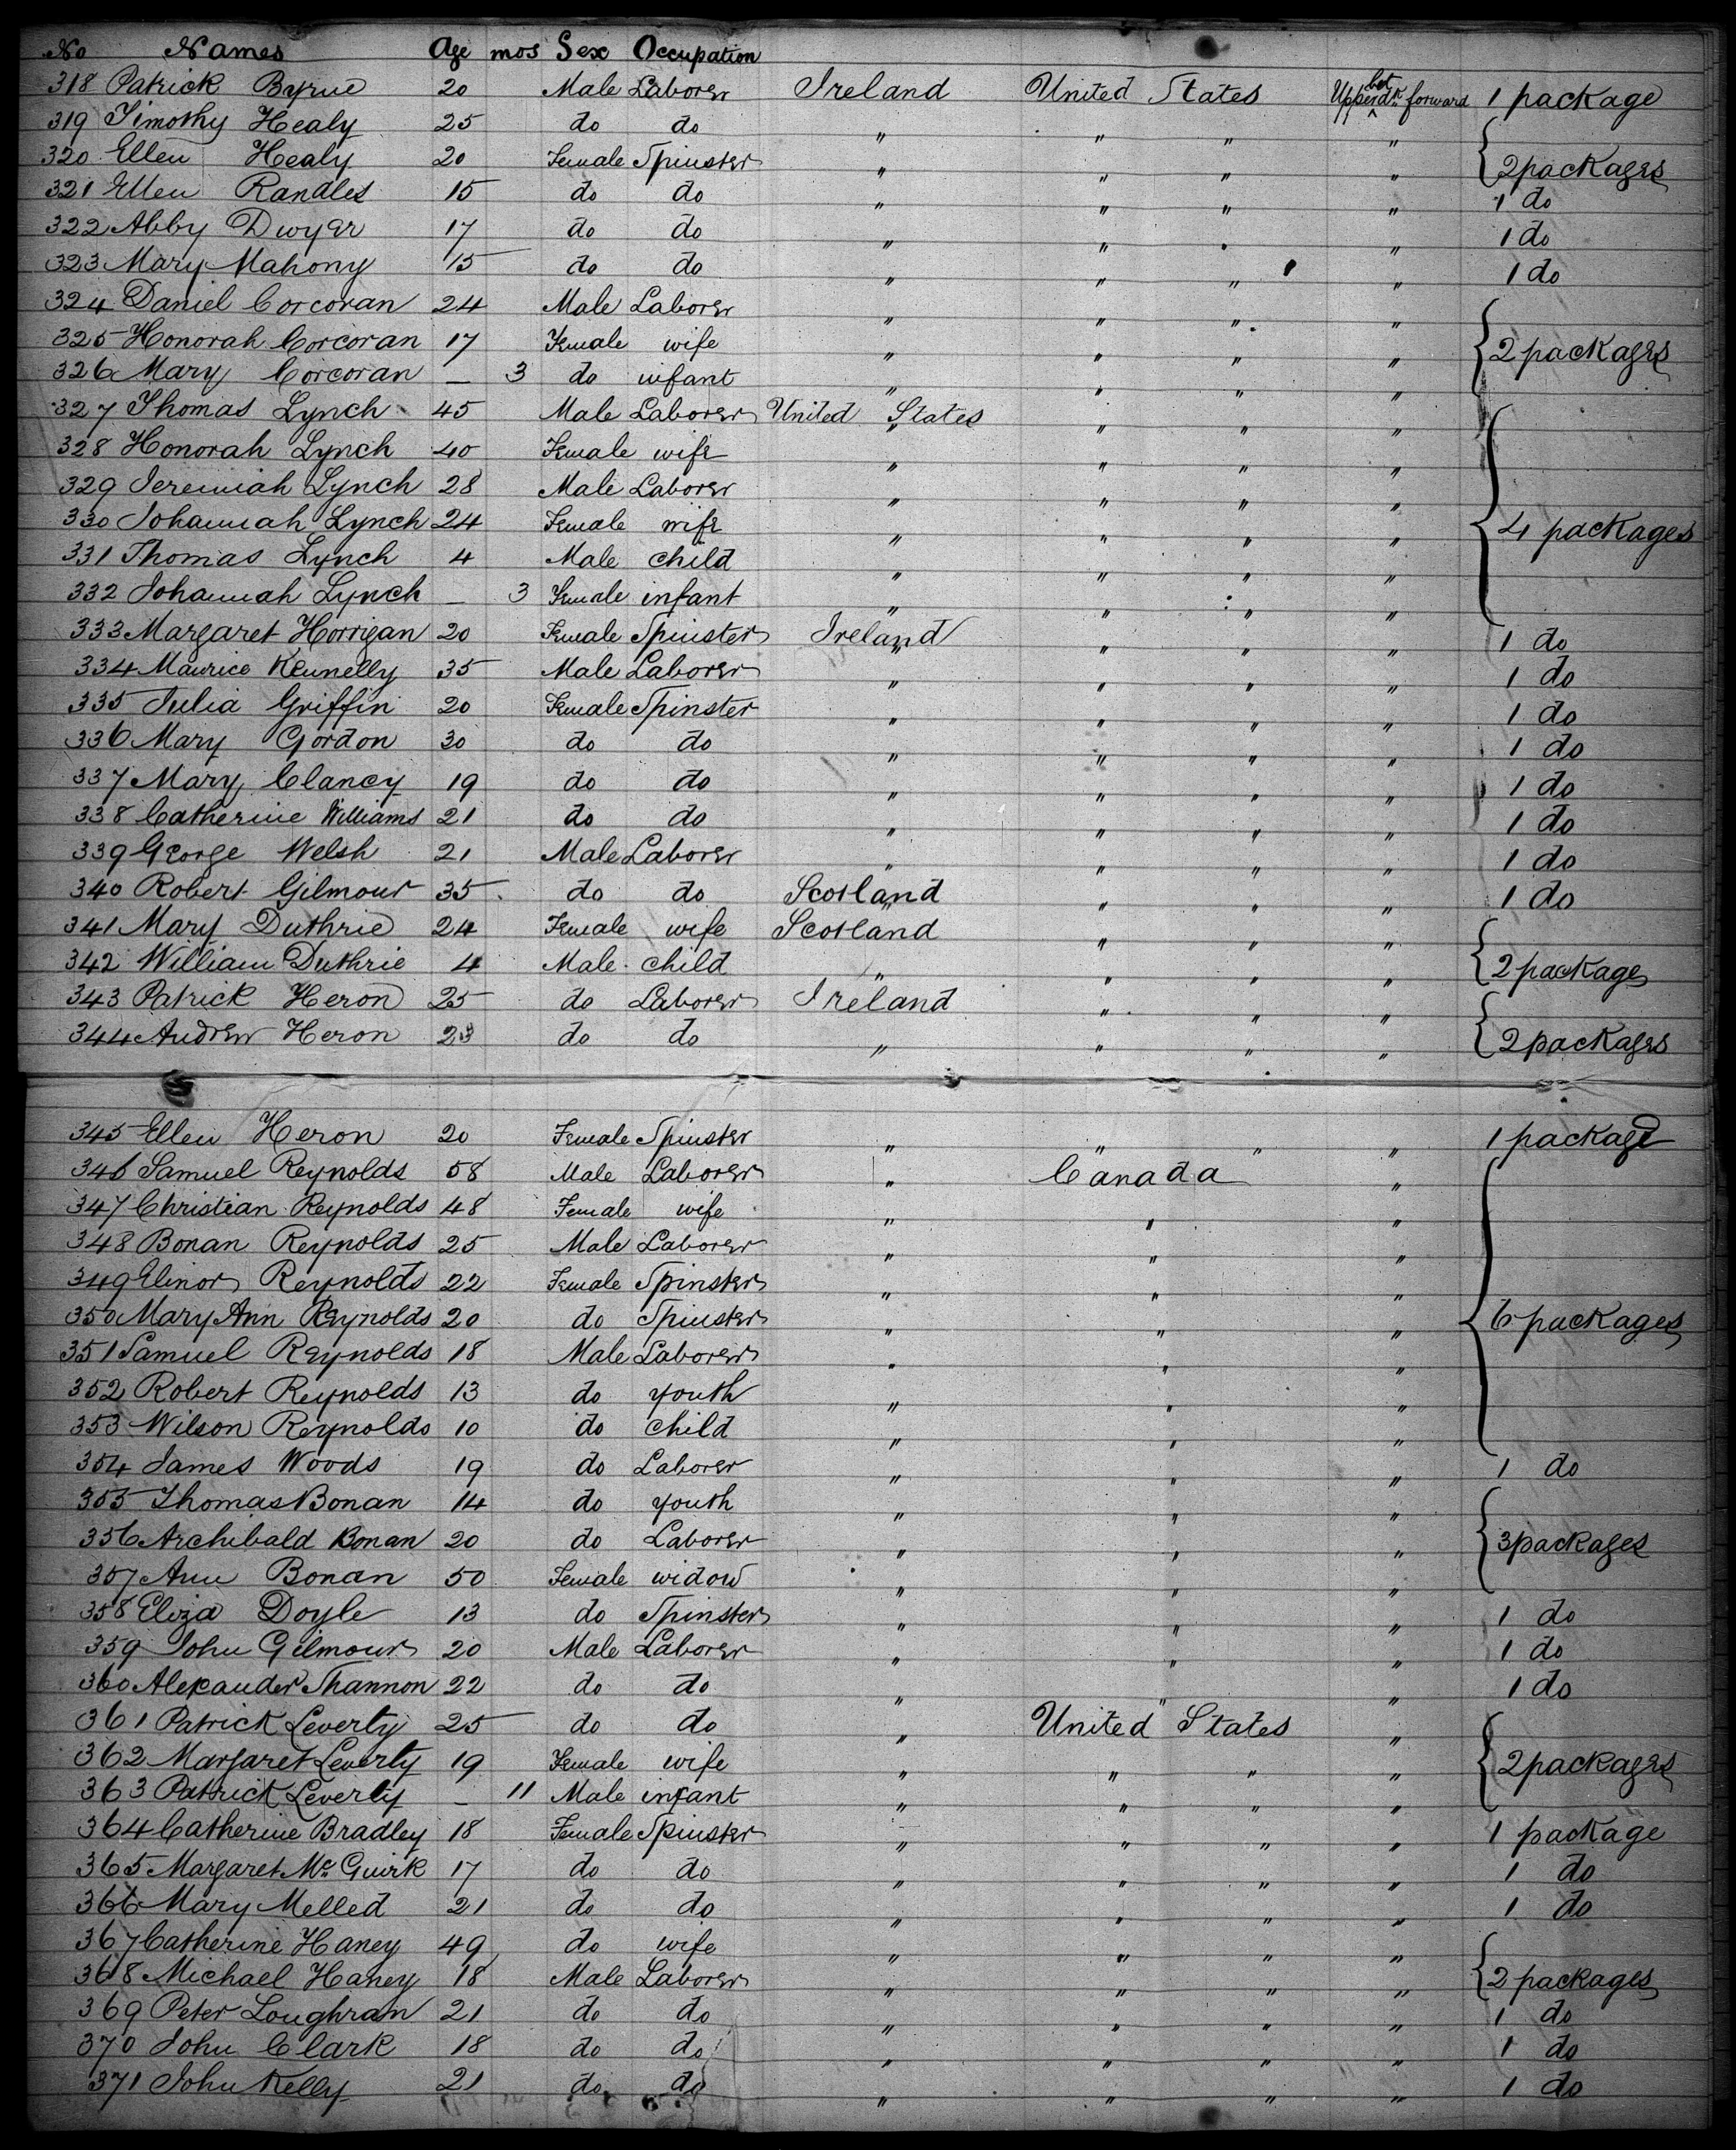 No Names Age mos Sex Occupation
318 Patrick Byrne 20 Male Laborer Ireland United States Upper bet dk forward 1 package
319 Timothy Healy 25 do do " " " "
320 Ellen Healy 20 Female Spinster " " " " 2 packages
321 Ellen Randles 15 do do " " " " 1 do
322 Abby Dwyer 17 do do " " " " 1 do
323 Mary Mahony 15 do do " " " " 1 do
324 Daniel Corcoran 24 Male Laborer " " " "
325 Honorah Corcoran 17 Female wife " " " " 2 packages
326 Mary Corcoran — 3 do infant " " " "
327 Thomas Lynch 45 Male Laborer United States " " "
328 Honorah Lynch 40 Female wife " " " "
329 Jeremiah Lynch 28 Male Laborer " " " "
330 Johannah Lynch 24 Female wife " " " " 4 packages
331 Thomas Lynch 4 Male child " " " "
332 Johannah Lynch — 3 Female infant " " " "
333 Margaret Horrigan 20 Female Spinster Ireland " " " 1 do
334 Maurice Kennelly 35 Male Laborer " " " " 1 do
335 Julia Griffin 20 Female Spinster " " " " 1 do
336 Mary Gordon 30 do do " " " " 1 do
337 Mary Clancy 19 do do " " " " 1 do
338 Catherine Williams 21 do do " " " " 1 do
339 George Welsh 21 Male Laborer " " " " 1 do
340 Robert Gilmour 35 do do Scotland " " " 1 do
341 Mary Duthrie 24 Female wife Scotland " " "
342 William Duthrie 4 Male child " " " " 2 package
343 Patrick Heron 25 do Laborer Ireland " " "
344 Andrew Heron 23 do do " " " " 2 packages
345 Ellen Heron 20 Female Spinster " " " " 1 package
346 Samuel Reynolds 58 Male Laborer " Canada "
347 Christian Reynolds 48 Female wife " " "
348 Bonan Reynolds 25 Male Laborer " " "
349 Elinor Reynolds 22 Female Spinster " " "
350 Mary Ann Reynolds 20 do Spinster " " " 6 packages
351 Samuel Reynolds 18 Male Laborer " " "
352 Robert Reynolds 13 do youth " " "
353 Wilson Reynolds 10 do child " " "
354 James Woods 19 do Laborer " " " 1 do
355 Thomas Bonan 14 do youth " " "
356 Archibald Bonan 20 do Laborer " " " 3 packages
357 Ann Bonan 50 Female widow " " "
358 Eliza Doyle 13 do Spinster " " " 1 do
359 John Gilmour 20 Male Laborer " " " 1 do
360 Alexander Shannon 22 do do " " " 1 do
361 Patrick Leverty 25 do do " United States "
362 Margaret Leverty 19 Female wife " " " " 2 packages
363 Patrick Leverty — 11 Male infant " " " "
364 Catherine Bradley 18 Female Spinster " " " " 1 package
365 Margaret Mc Guirk 17 do do " " " " 1 do
366 Mary Melled 21 do do " " " " 1 do
367 Catherine Haney 49 do wife " " " "
368 Michael Haney 18 Male Laborer " " " " 2 packages
369 Peter Loughran 21 do do " " " " 1 do
370 John Clark 18 do do " " " " 1 do
371 John Kelly 21 do do " " " " 1 do